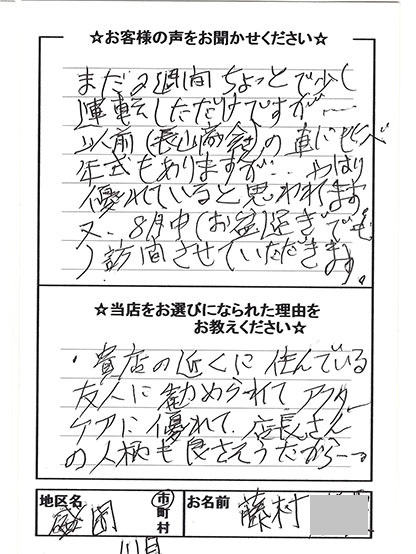 ☆お客様の声をお聞かせください☆
まだ2週間ちょっとで少く
運転しただけですが〜
以前(長山商会)の車にせべ
年式もありますが‥やはり
優れていると思われます
又、8月中(お盆)過ぎでも
訪問させていただきます。
☆当店をお選びになられた理由を
お教えください☆
・貴店の近くに住んでいる
友人に勧められてアフター
ケアに優れて、店長さん
の人柄も良さそうだから〜
地区名 盛岡 市町村 お名前 藤村